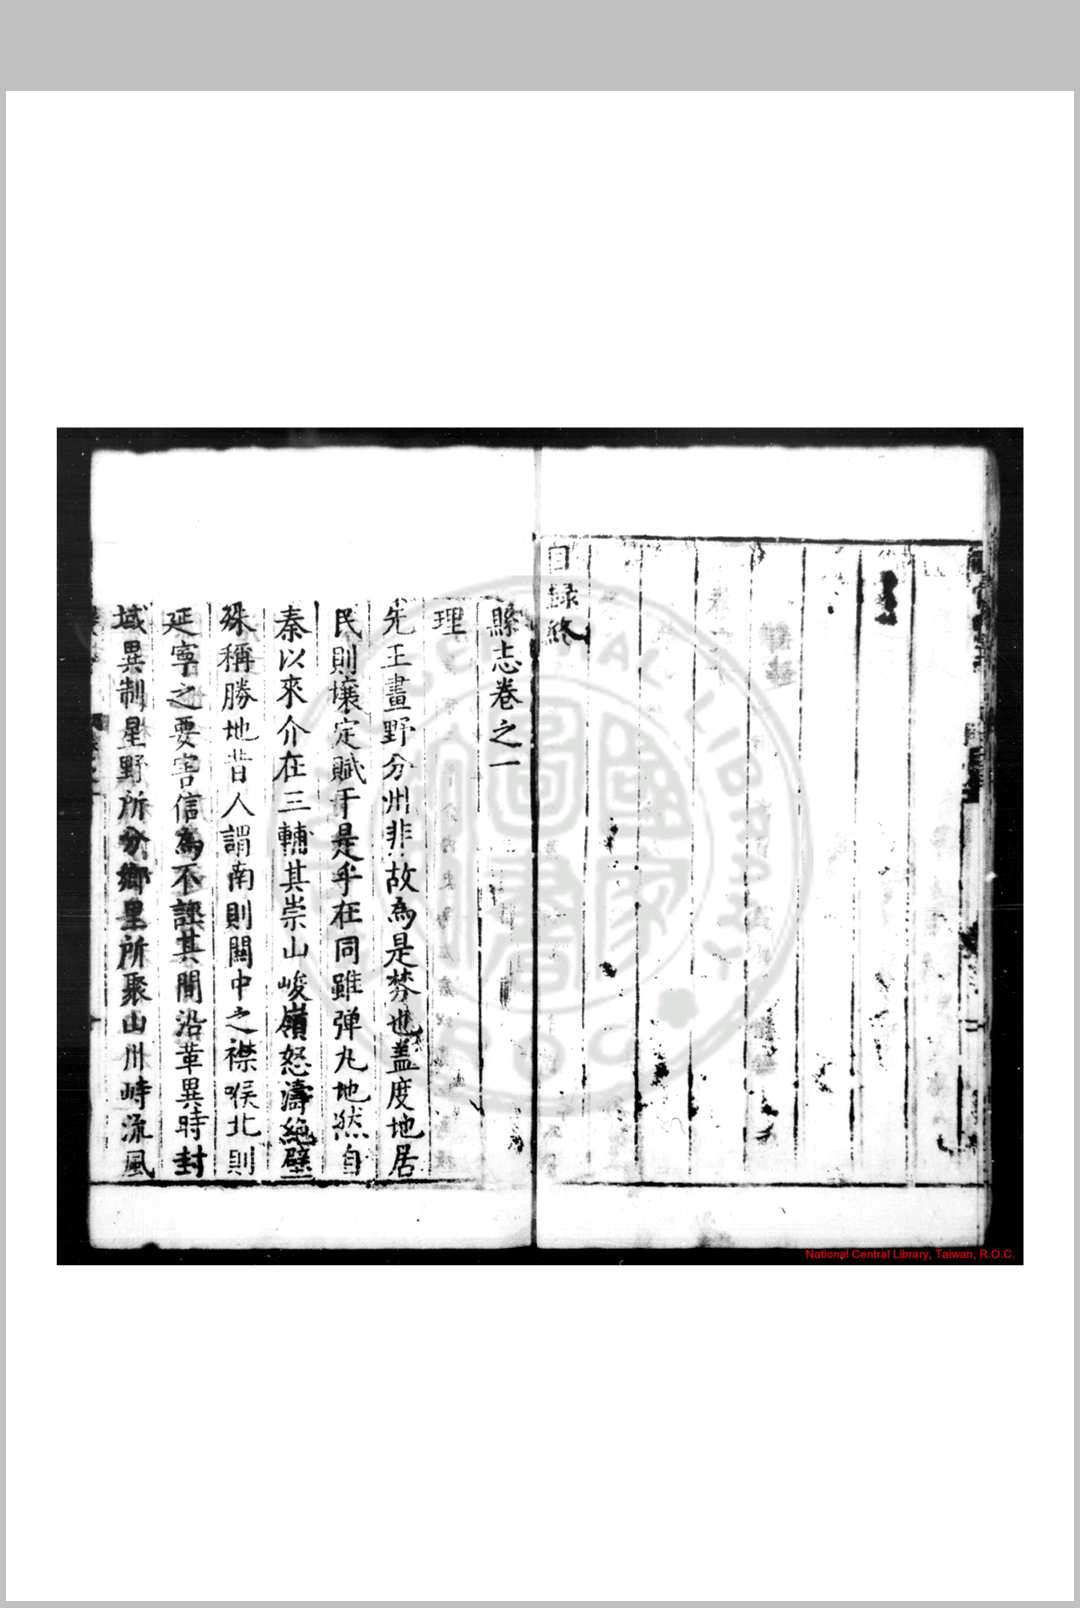 目録終
縣志卷之一
理
先王畫野分州非故為是棼也盖度地居
民則壤定賦于是乎在同雖弹丸地然自
秦以來介在三輔其崇山峻嶺怒濤絶壁
殊稱勝地昔人謂南則關中之襟喉北則
延寧之要害信為不誣其間沿革異時封
域異制星野所分鄉里所聚山川峙流風
National Central Library, Taiwan, R.O.C.